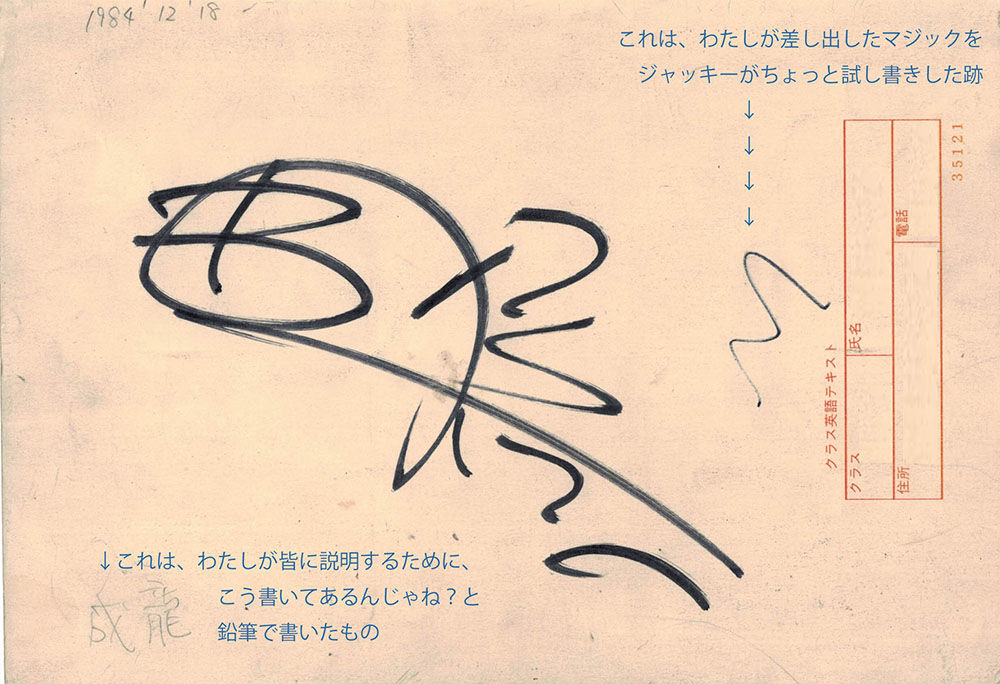 1984' 12' 18
これは、わたしが差し出したマジックを
ジャッキーがちょっと試し書きした跡
↓
↓
↓
↓
35121
電話
氏名
クラス英語テキスト
クラス
住所
↓これは、わたしが皆に説明するために、
こう書いてあるんじゃね?と
鉛筆で書いたもの
成龍